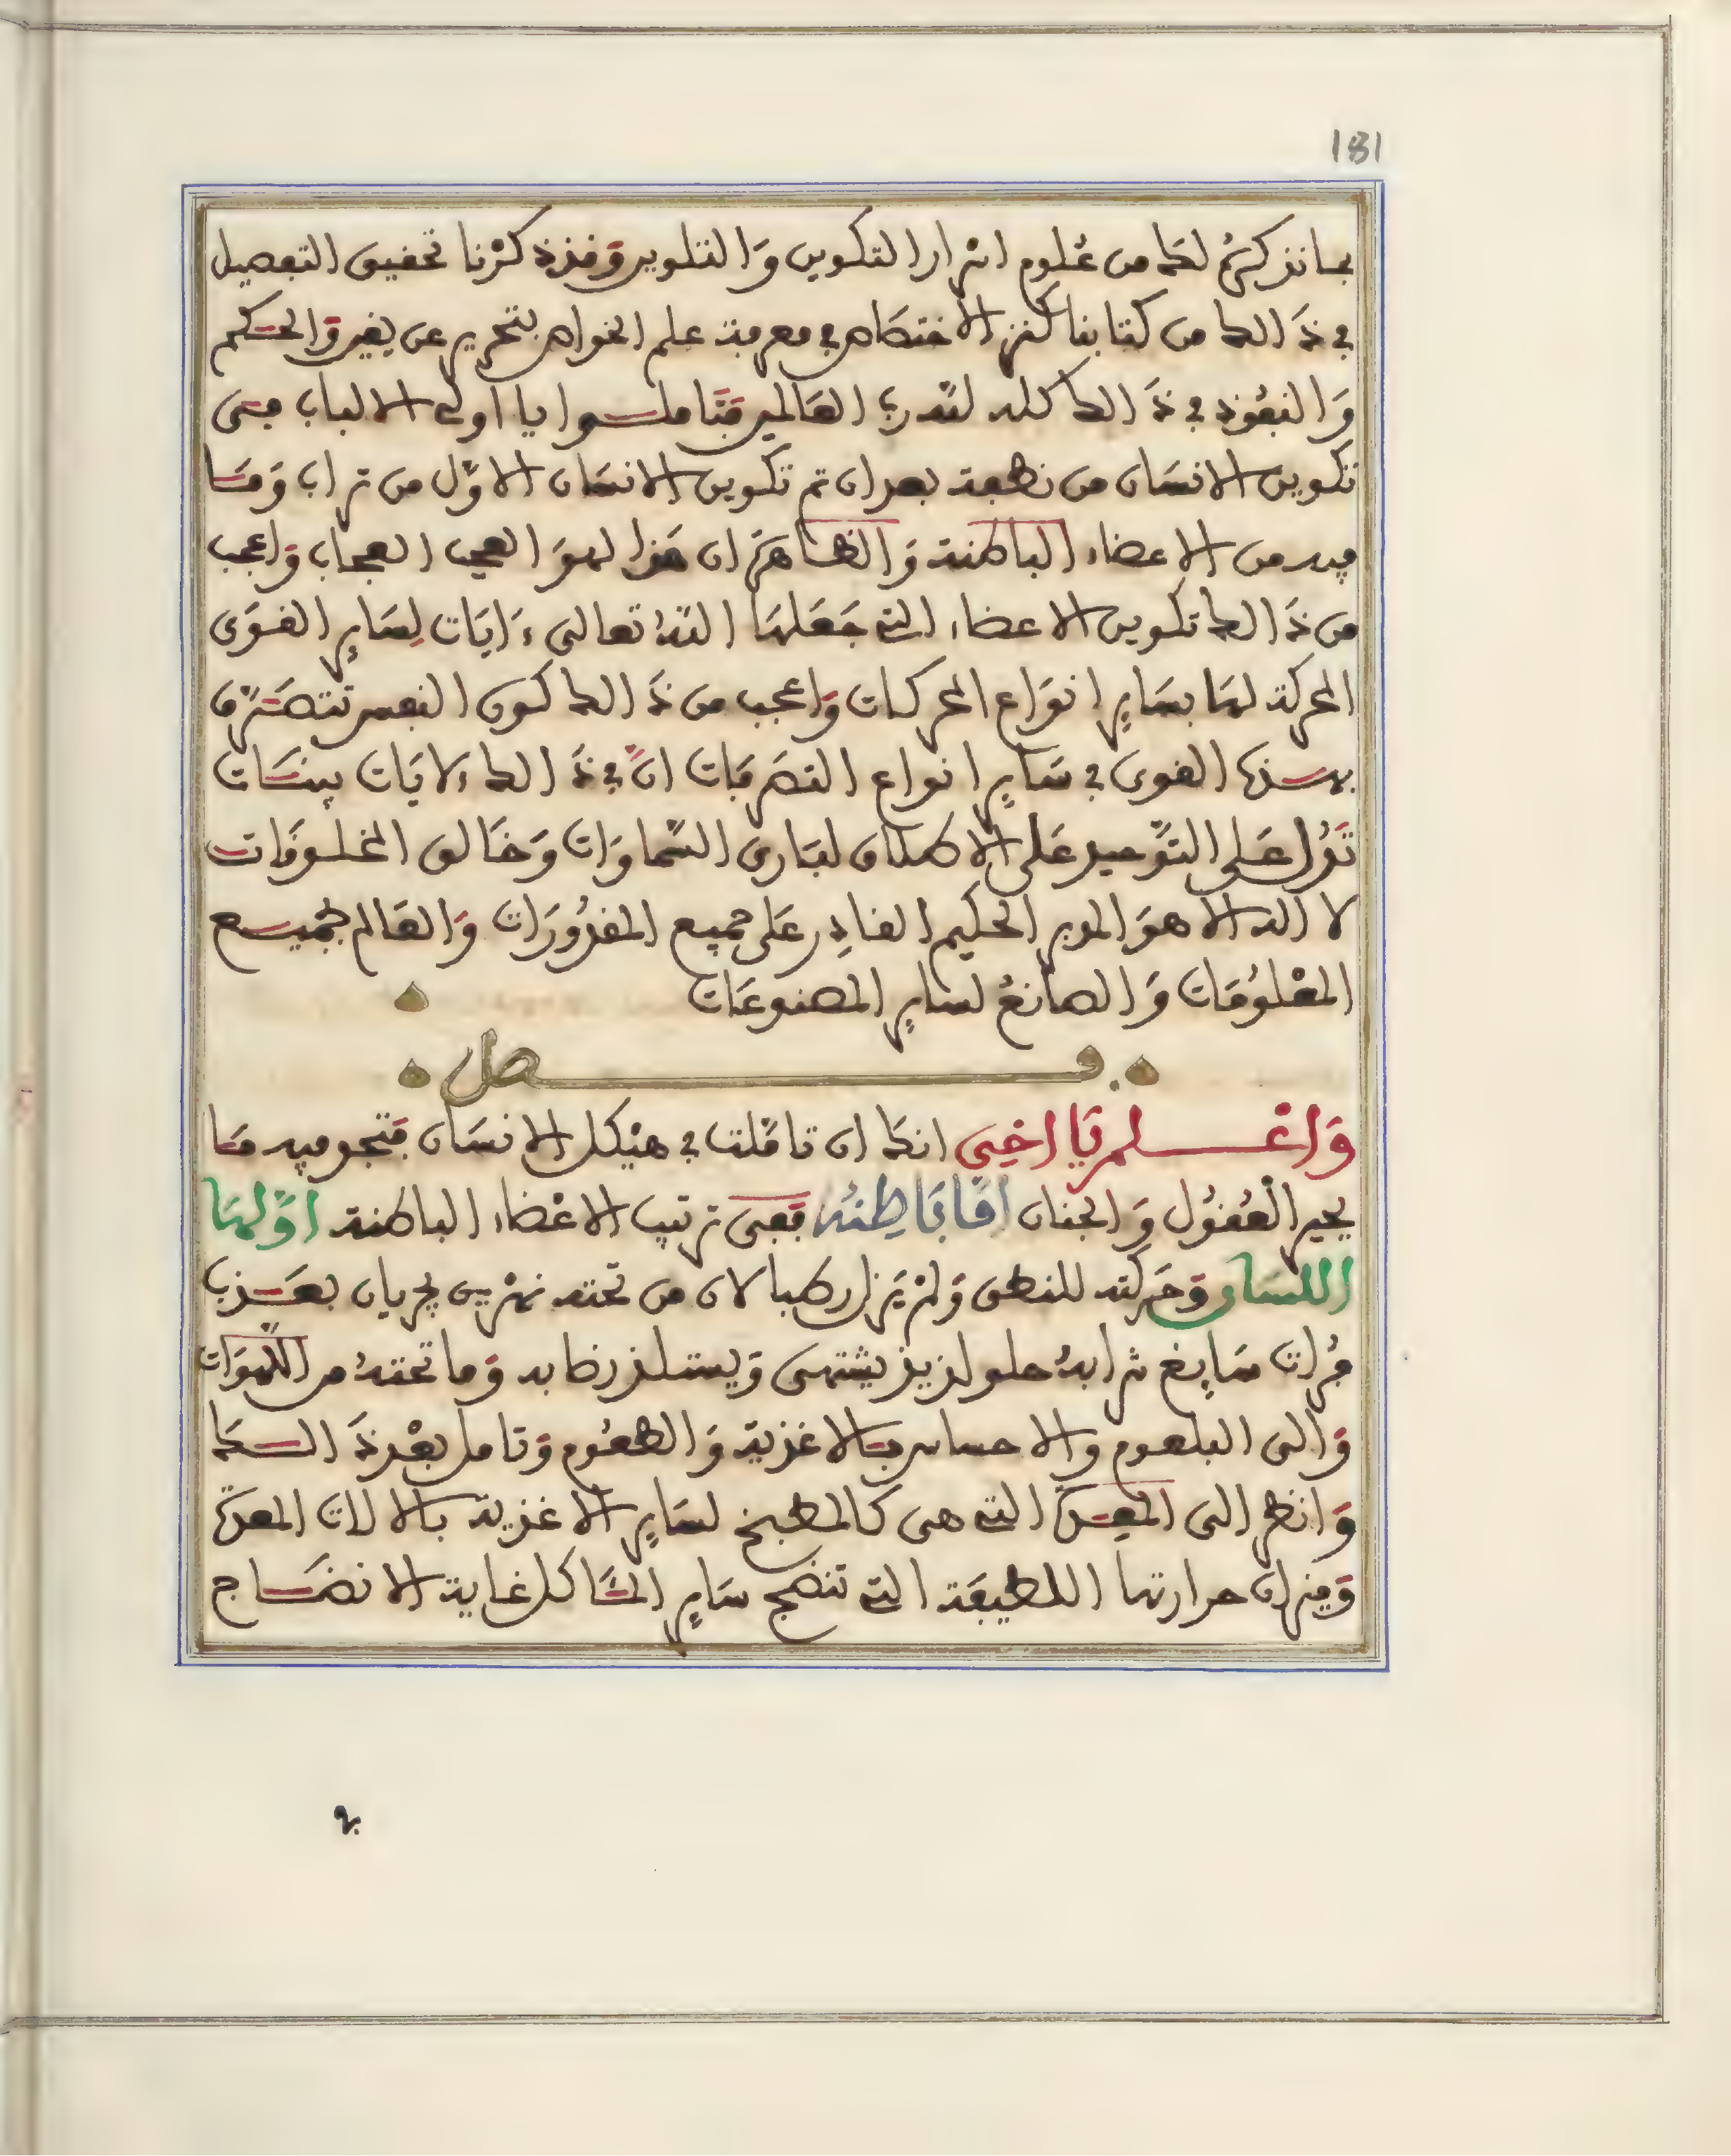 181
بما نذكره لك من عُلوم اسرار التكوين وَالتلوين وَقد ذكرْنا تحقيق التفصيل
في ذَالك من كتابنا كنز الاختصَاص في معرفة علم الخواص بتحرير عن يقين وَالحكم
وَالنفوذ في ذَالك كله لله ربّ العَالمين فتَأملوا يا اولى الالباب فى
تكوين الانسَان من نطفة بعد ان تم تكوين الانسَان الاوّل من تراب وَمَا
فيه من الاعضاء الباطنة وَالظاهرَة ان هَذا لهوَ العجب العجاب وَاعجب
من ذَالك تكوين الاعضاء التي جَعَلهَا اللهُ تعالى ءَايَات لِسَايرِ القوَى
المحركة لهَا بسَايرِ انوَاع الحركات وَاعجب من ذَالك كون النفس تتصَرّف
بهذه القوى في سَايرِ انواع التصَرفَات انّ في ذَالك ءلايَات بينَات
تَدُل عَلى التوّحيد عَلى الاطلاق لبَارى السّماوَات وَخَالق المخلوقَات
لا اله الا هوَ المدبر الحكيم القادِر عَلى جميع المقدُورَات وَالعَالم بجميع
المعْلوُمَات وَالصانعُ لساير المصنوعَات
فصل
وَاعْلم يَا اخِى انك ان تاملت في هيْكل الانسَان فتجد فيه مَا
يحير العُقوُل وَالجنان امَّا بَاطِنهُ فعَبى ترتيب الاعْضاء الباطنة اوّلهَا
اللسَان وَحَركته للنطق وَلمْ يَزل رطبا لان من تحته نهْرين يجريان بعَذب
فُرات سَايِغ شرابهُ حلو لذيذ يشتهى وَيستلذ رضابه وَما تحتهُ من اللّهوَات
وَالى البلعوم والاحساس بالاغذية وَالطعُوم وَتامل بعْد ذَالك
وَانظر الى المعِدَة التي هى كالمطبخ لسَايرِ الاغذية بالالات المعدة
وَميزان حرارتها اللطيفَة التي تنضج سَايرِ المئاكل غاية الانضَاج